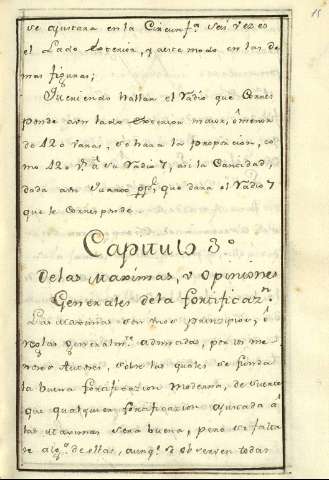 15
se ajustara en la Circunfª. seis vezes
el Lado Exterior, y aeste modo en las de
mas figuras;
Queriendo hallar el Radio que Corres
ponde aun lado Exterior maior, ô menor
de 120 varas, se hara la proporcion, co
mo 120 vs. â su Radio 7, asi la Cantidad,
dada a un quarto que dara el Radio 7
que le Corresponde.
Capitulo 3º
Delas Maximas, y Opiniones
Generales dela fortificazn.
Las Maximas son unos principios, ô
reglas generalmte. admitidas, por un me
ro de Autores, sobre las quales se funda
la buena fortificazion Moderna, de suerte
que qualquiera fortificazion ajustada â
las Maximas sera buena, pero si falta
se algª. de ellas, aunqe. se observen todas